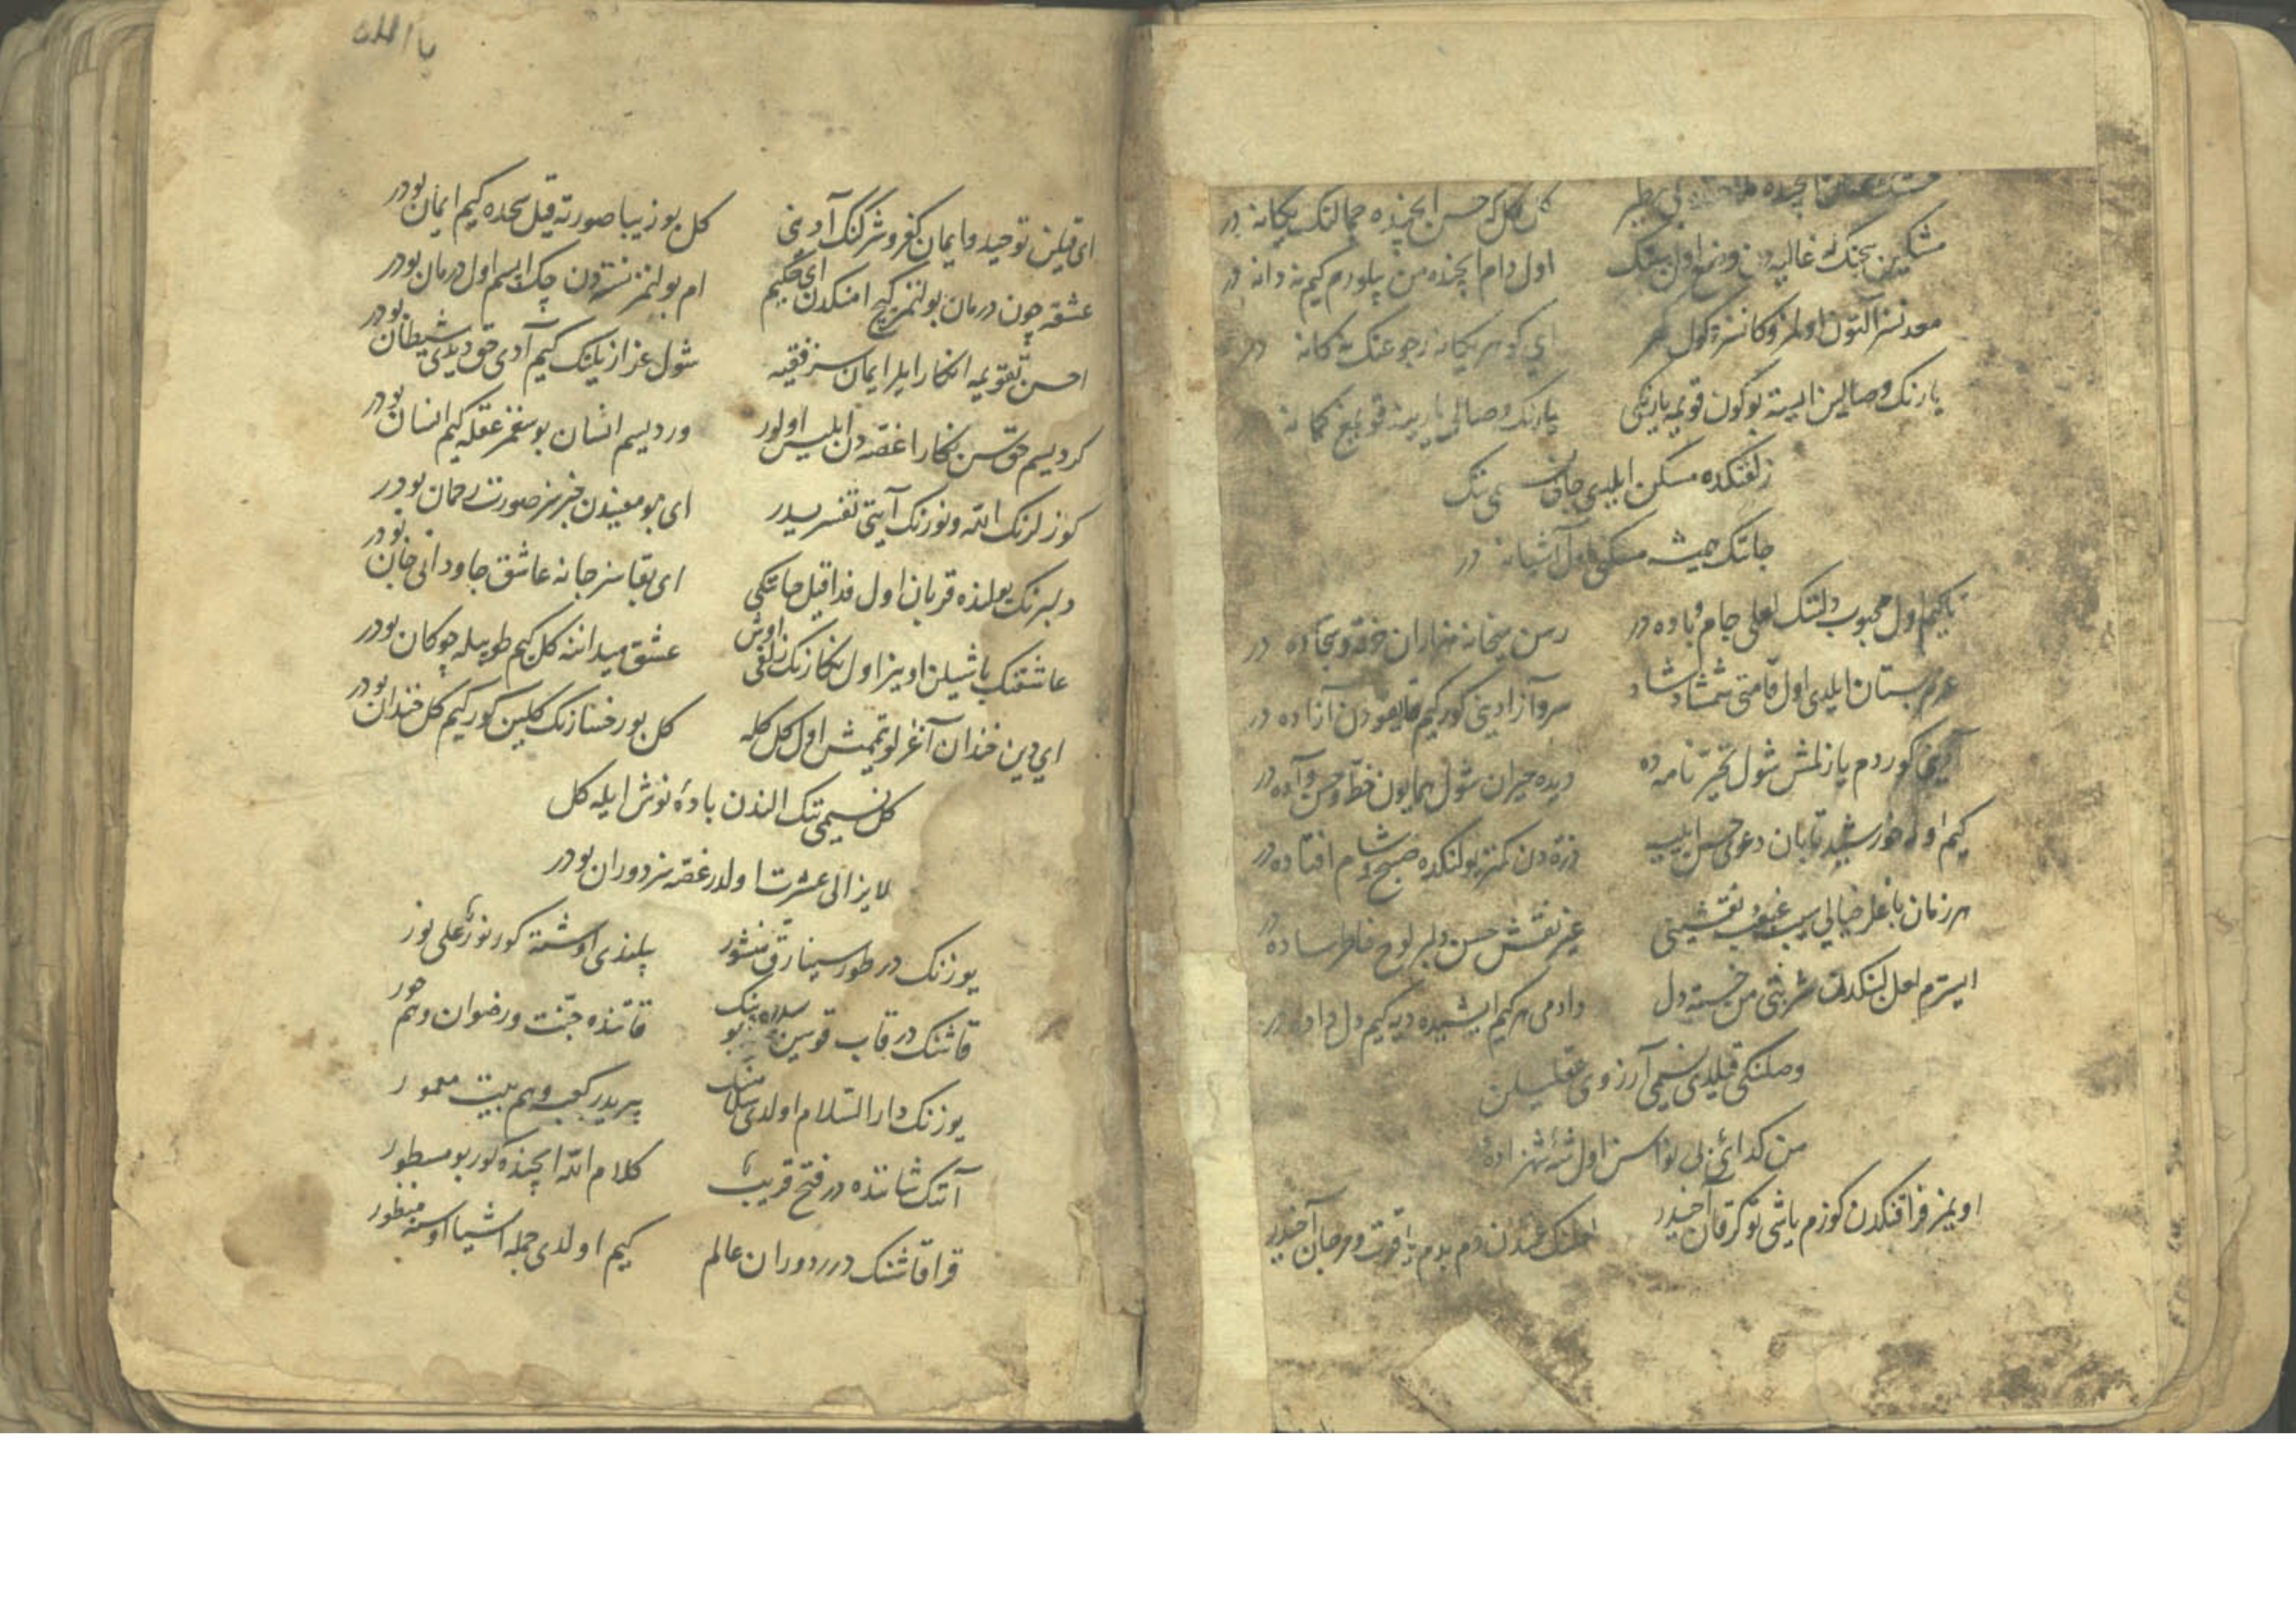 ایچنده
کل کل که حسن ایچنده جمالنک یکانه در
مشکین ساچنک نه غالیه در اول بنک
اول دام ایچنده من بیلورم کیم نه دانه در
معدنسز آلتون اولمز و کانسز کهر
ای کوهر یکانه رجوعنک نه کانه در
یارنک وصالین ایسته بوکون قویمه یارینکی
یارنک وصالی یارینه قویمغ کمانه
زلفنکده مسکن ایلدی جان نسیمی تنک
جانک همیشه مسکنی اول آشیانه در
تا کیم اول محبوب دلنک لعلی جام و باده در
رهن میخانه هزاران خرقه و سجاده در
عزم بستان ایلدی اول قامتی شمشاد شاد
سرو آزادینی کور کیم قایغودن آزاده در
آدینی کوردم یازلمش شول تحیر نامه ده
دیده حیران شول همایون خط و حسن آده در
کیم اوله خورشید تابان دعوی حسن ایلییب
ذره دن کمتر یولنکده صبح و شام افتاده در
هر زمان باغلر خیالی سیب غبغب نقشینی
غیر نقش حسن دلبر لوح خاطر ساده در
ایسترم لعل لبنکدن شربتی من خسته دل
دادمی هر کیم ایشیده دیه کیم دل داده در
وصلنکی قیلدی نسیمی آرزوی عقلیلن
من کدای بی نوا سن اول شه شهزاده
اویمز فراقنکدن کوزم یاشی توکر قان آخیدر
دم بدم یاقوت و مرجان آخیدر
یا الله
ای قیلن توحید و ایمان کفر و شرکنک آدینی
کل بو زیبا صورته قیل سجده کیم ایمان بودر
عشقه چون درمان بولنمز کیچ امکدن ای حکیم
ام بولنمز نسنه دن چک ایسم اول درمان بودر
احسن تقویمه انکار ایلر ایمان سز فقیه
شول عزازیلنک کیم آدی حق دیدی شیطان بودر
کر دیسم حقسن نکارا غصه دن ابلیس اولور
ور دیسم انسان بو سغمز عقله کیم انسان بودر
کوزلرنک الله و نورنک آیتی تفسیریدر
ای بو معنیدن خبرسز صورت رحمان بودر
دلبرنک یولنده قربان اول فدا قیل جانکی
ای بقاسز جانه عاشق جاودانی جان بودر
عاشقنک باشیلن اوینر اول نکارنک زلفی اوش
عشق میداننه کل کیم طوبیله چوکان بودر
ای دین خندان آغزلو تمیش اول کل کله
کل بو رخسارنک کلین کور کیم کل خندان بودر
کل نسیمی تنک الندن باده نوش ایله کل
لایزالی عشرت اولدر غصه سز دوران بودر
یوزنک در طور سینا رق منشور
یلنذی اوشته کور نور علی نور
قاشنک در قاب قوسین بو سدره بنک
قاتنده جنت و رضوان و هم حور
یوزنک دار السلام اولدی
پریدر کعبه و هم بیت معمور
آنک شاننده در فتح قریب
کلام الله ایچنده کور بو مسطور
قرا قاشنک در دوران عالم
کیم اولدی جمله اشیا اوسته منظور